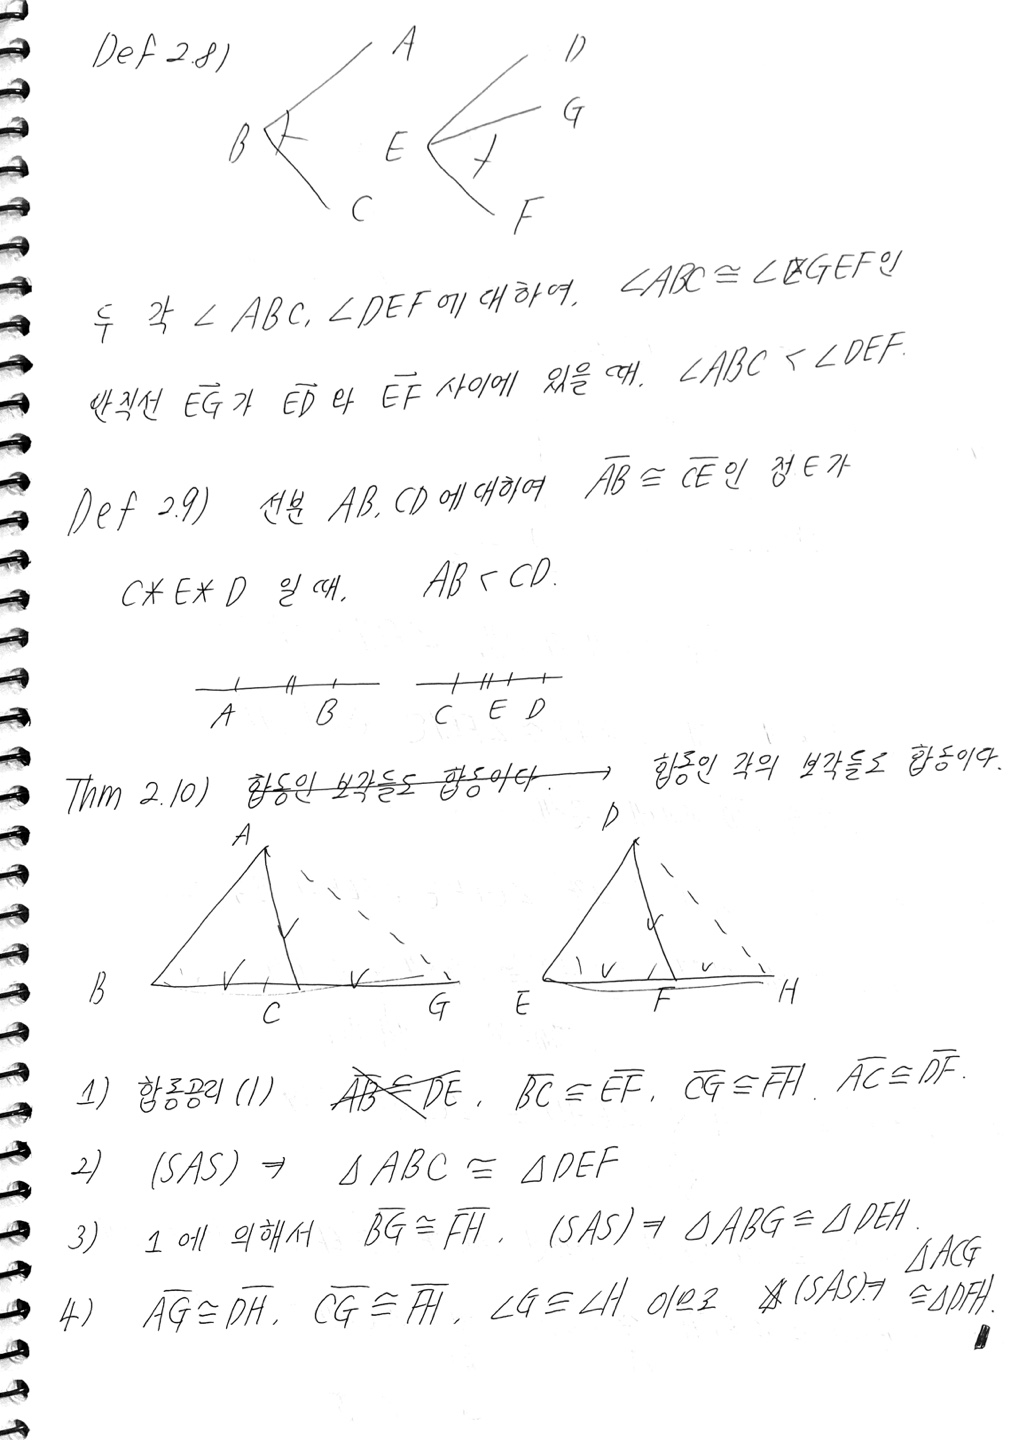 Def 2.8)
A
D
G
B
E
C
F
두 각 ∠ABC, ∠DEF에 대하여, ∠ABC ≅ ∠GEF인
반직선 EG가 ED와 EF 사이에 있을 때, ∠ABC < ∠DEF.
Def 2.9) 선분 AB, CD에 대하여 AB ≅ CE인 점 E가
C*E*D 일 때, AB < CD.
A B C E D
Thm 2.10) 합동인 보각들도 합동이다. → 합동인 각의 보각들도 합동이다.
A D
B C G E F H
1) 합동공리(1) AB ≅ DE, BC ≅ EF, CG ≅ FH, AC ≅ DF.
2) (SAS) ⇒ △ABC ≅ △DEF
3) 1에 의해서 BG ≅ FH, (SAS) ⇒ △ABG ≅ △DEH.
4) AG ≅ DH, CG ≅ FH, ∠G ≅ ∠H 이므로 (SAS) ⇒ △ACG ≅ △DFH.